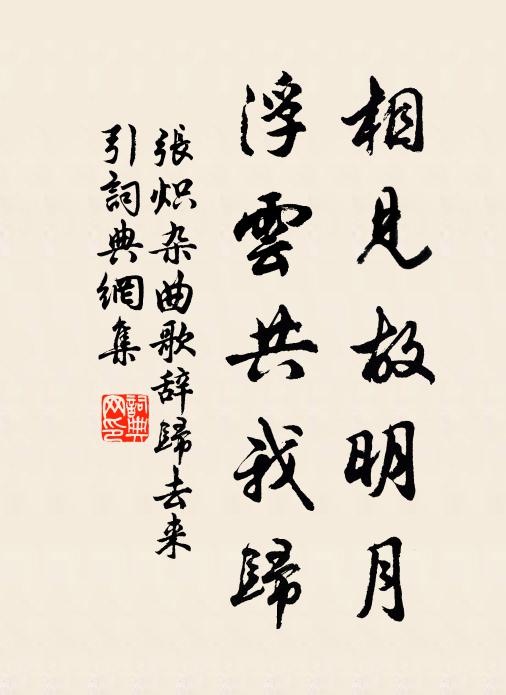 相見故明月
浮雲共我歸
張炽杂曲歌辞歸去来
引詞典網集
詞典
网印